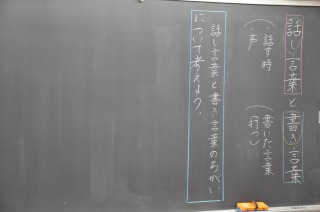 話し言葉と書き言葉
(・話す時
声
(書いた言葉
話し言葉と書き言葉のちがい
について考えよう。